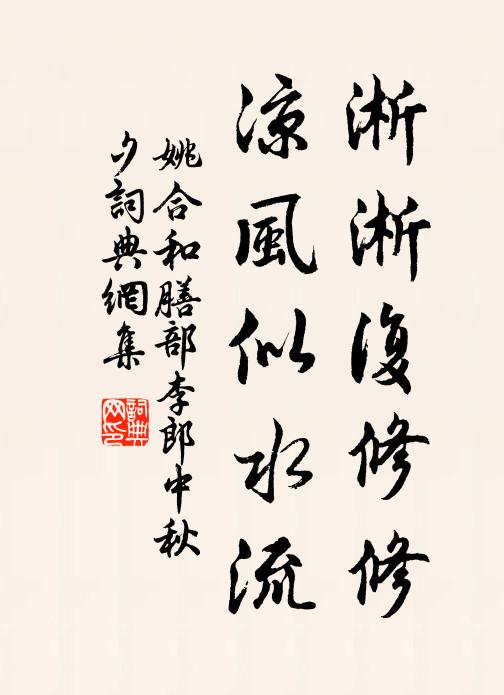 淅淅復修修
涼風似水流
姚合和膳部李郎中秋
夕詞典網集
詞典
網印